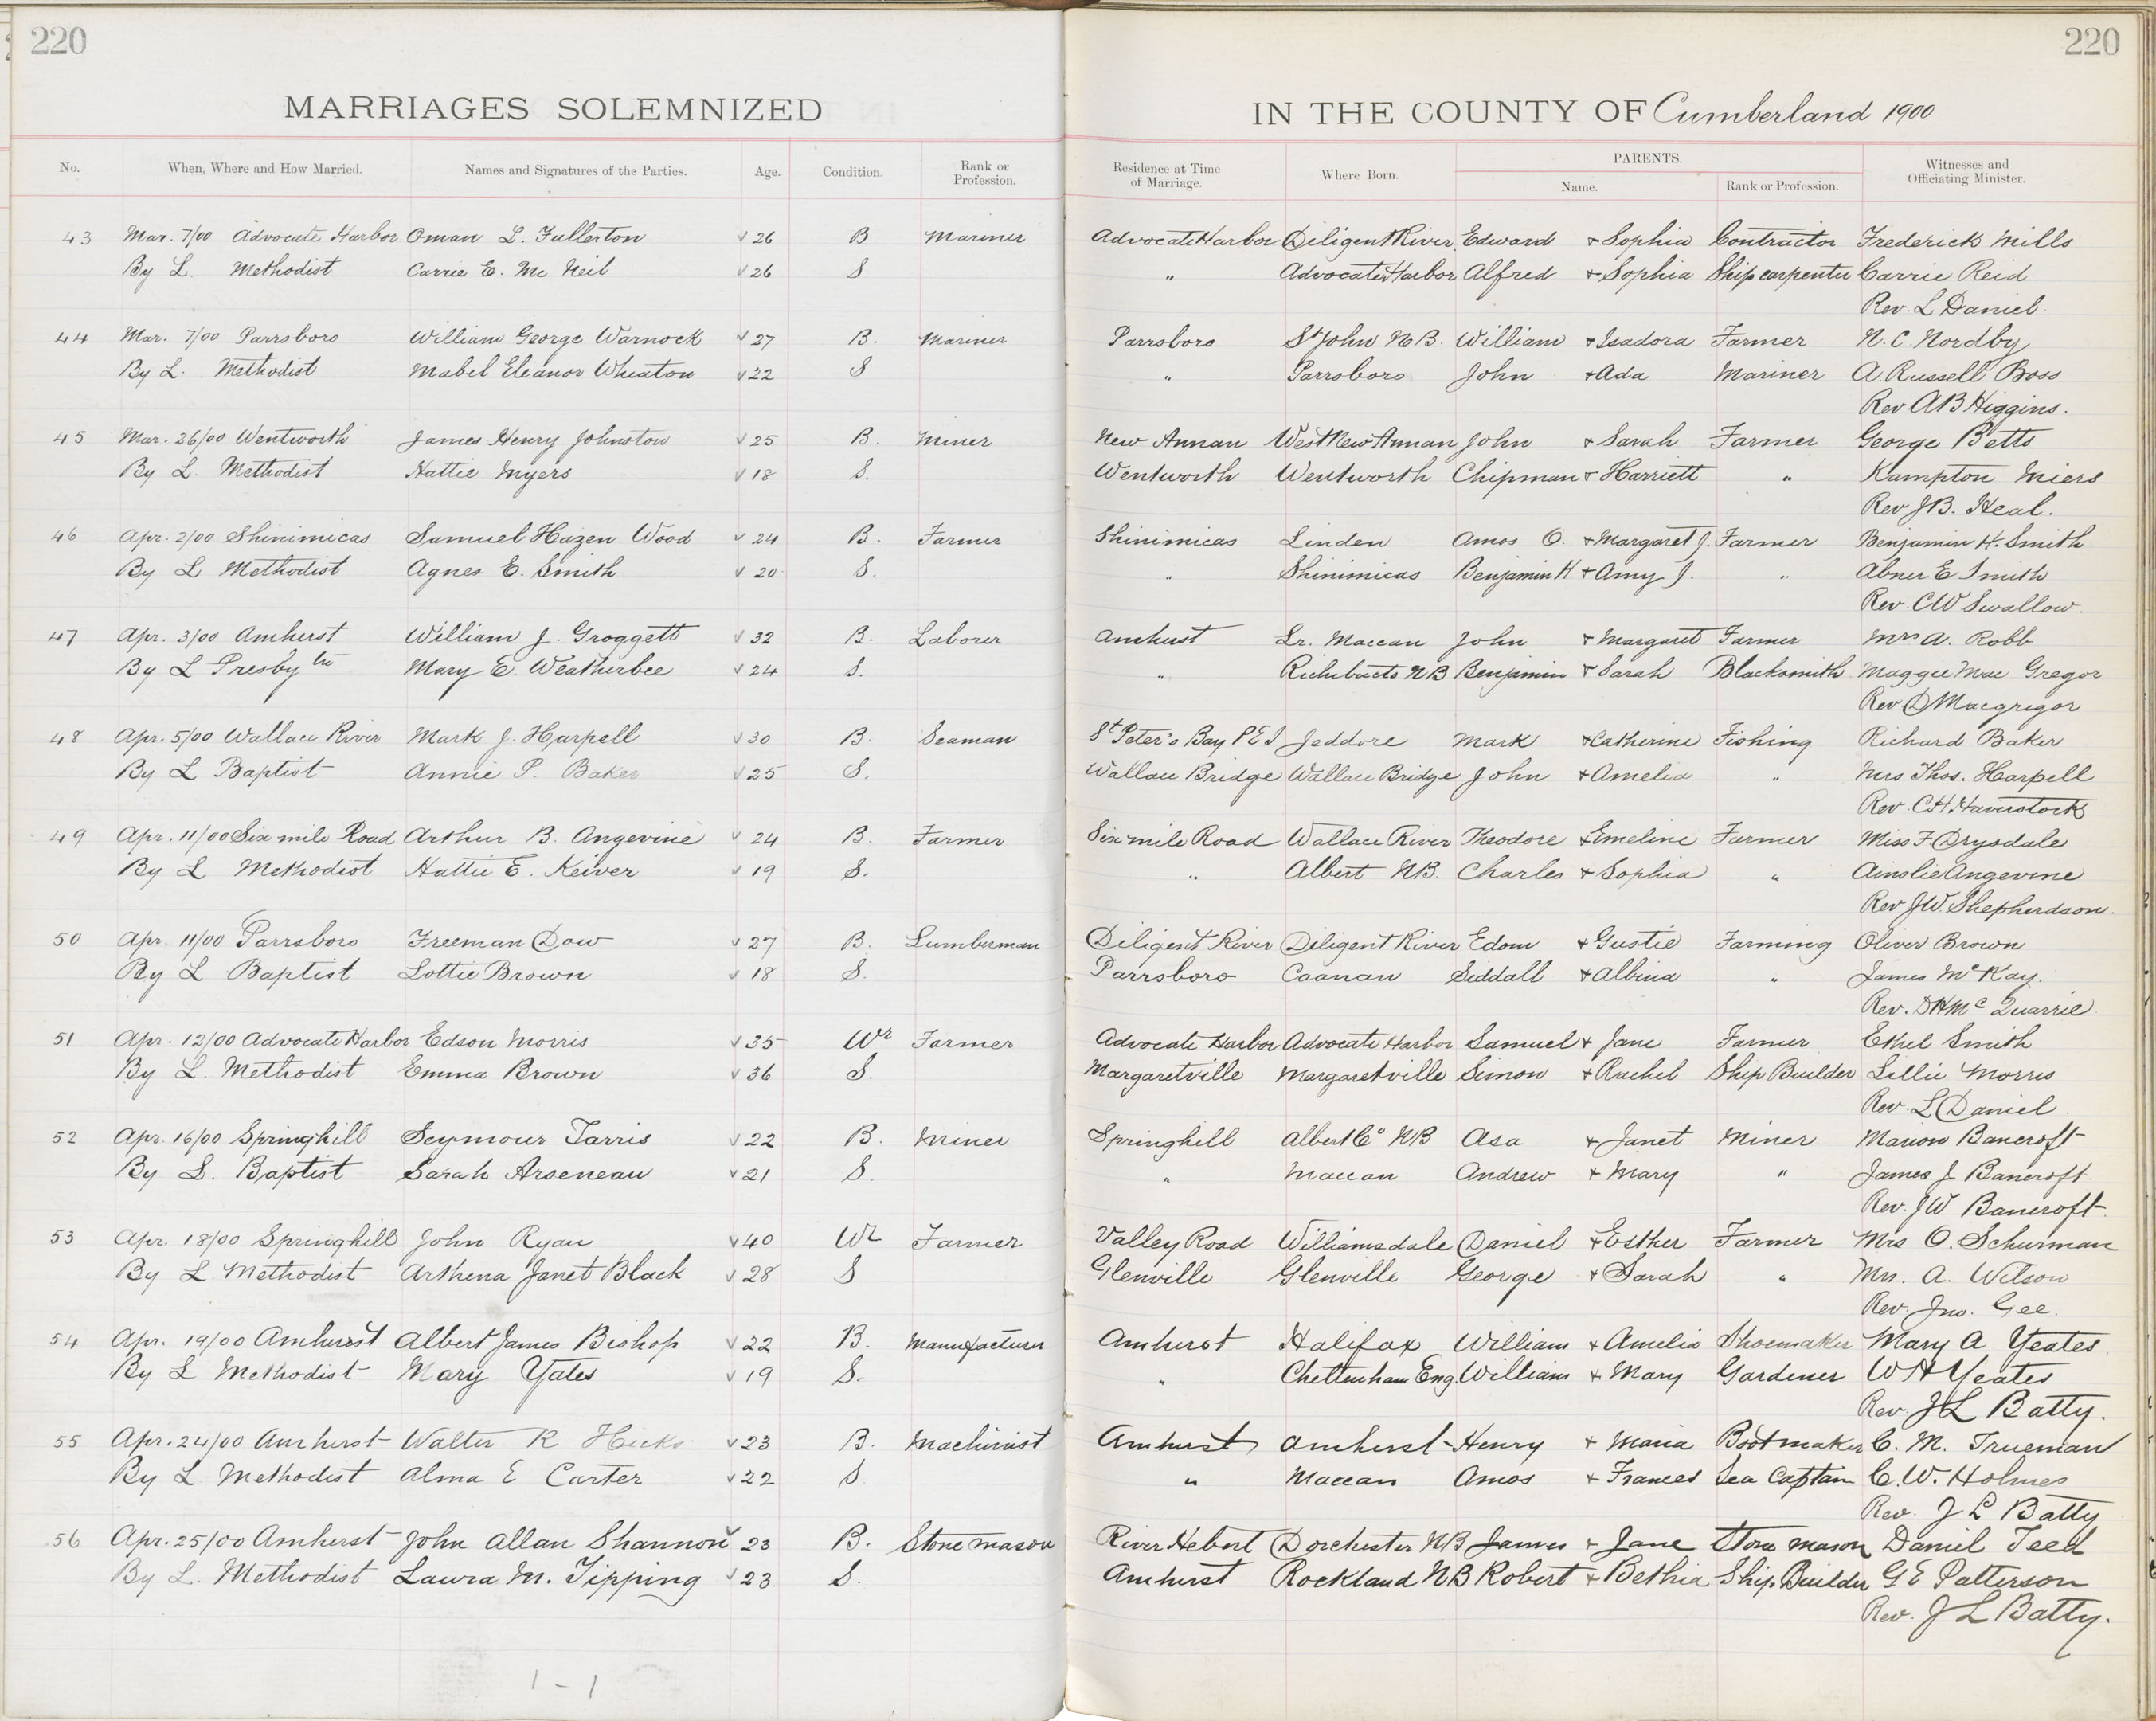 220 220
MARRIAGES SOLEMNIZED IN THE COUNTY OF Cumberland 1900
No. When, Where and How Married. Names and Signatures of the Parties. Age. Condition. Rank or Profession. Residence at Time of Marriage. Where Born. PARENTS. Name. Rank or Profession. Witnesses and Officiating Minister.
43 Mar. 7/00 Advocate Harbor Oman L. Fullerton √ 26 B Mariner Advocate Harbor Diligent River Edward + Sophia Contractor Frederick Mills
By L. Methodist Carrie E. Mc Neil √ 26 S " Advocate Harbor Alfred + Sophia Ship carpenter Carrie Reid
Rev. L Daniel.
44 Mar. 7/00 Parrsboro William George Warnock √ 27 B. Mariner Parrsboro St John N B. William + Isadora Farmer N. C. Nordby
By L. Methodist Mabel Eleanor Wheaton √ 22 S " Parrsboro John + Ada Mariner A. Russell Boss
Rev. A B Higgins.
45 Mar. 26/00 Wentworth James Henry Johnston √ 25 B. Miner New Annan West New Annan John + Sarah Farmer George Betts
By L. Methodist Hattie Myers √ 18 S. Wentworth Wentworth Chipman + Harriett " Kampton Miers
Rev J B. Heal.
46 Apr. 2/00 Shinimicas Samuel Hazen Wood √ 24 B. Farmer Shinimicas Linden Amos O. + Margaret J. Farmer Benjamin H. Smith
By L Methodist Agnes E. Smith √ 20 S. " Shinimicas Benjamin H. + Amy J. " Abner E Smith
Rev. C W Swallow.
47 Apr. 3/00 Amherst William J. Groggett √ 32 B. Labourer Amherst Lr. Maccan John + Margaret Farmer Mrs A. Robb
By L Presbytn Mary E. Weatherbee √ 24 S. " Richibucto N B Benjamin + Sarah Blacksmith Maggie Mac Gregor
Rev D Macgregor
48 Apr. 5/00 Wallace River Mark J. Harpell √ 30 B. Seaman St Peter's Bay P E I Jeddore Mark + Catherine Fishing Richard Baker
By L Baptist Annie P. Baker √ 25 S. Wallace Bridge Wallace Bridge John + Amelia " Mrs Thos. Harpell
Rev. C H. Haverstock
49 Apr. 11/00 Six mile Road Arthur B. Angevine √ 24 B. Farmer Six mile Road Wallace River Theodore + Emeline Farmer Miss F Drysdale
By L Methodist Hattie E. Keiver √ 19 S. " Albert N B. Charles + Sophia " Ainslie Angevine
Rev J W. Shepherdson.
50 Apr. 11/00 Parrsboro Freeman Dow √ 27 B. Lumberman Diligent River Diligent River Edom + Gustie Farming Oliver Brown
By L Baptist Lottie Brown √ 18 S. Parrsboro Caanan Siddall + Albina " James McKay.
Rev. D H Mc Quarrie
51 Apr. 12/00 Advocate Harbor Edson Morris √ 35 Wr Farmer Advocate Harbor Advocate Harbor Samuel + Jane Farmer Ethel Smith
By L. Methodist Emma Brown √ 36 S. Margaretville Margaretville Simon + Rachel Ship Builder Lillie Morris
Rev. L Daniel
52 Apr. 16/00 Springhill Seymour Tarris √ 22 B. Miner Springhill Albert Co N B Asa + Janet Miner Marion Bancroft
By L. Baptist Sarah Arseneau √ 21 S. " Maccan Andrew + Mary " James J Bancroft
Rev. J W Bancroft
53 Apr. 18/00 Springhill John Ryan √ 40 Wr Farmer Valley Road Williamsdale Daniel + Esther Farmer Mrs O. Schurman
By L Methodist Arthena Janet Black √ 28 S Glenville Glenville George + Sarah " Mrs. A. Wilson
Rev. Jno. Gee.
54 Apr. 19/00 Amherst Albert James Bishop √ 22 B. Manufacturer Amherst Halifax William + Amelia Shoemaker Mary A Yeates
By L Methodist Mary Yates √ 19 S. " Cheltenham Eng. William + Mary Gardener W H Yeates
Rev. J L Batty.
55 Apr. 24/00 Amherst Walter R Hicks √ 23 B. Machinist Amherst Amherst Henry + Maria Bootmaker C. M. Trueman
By L Methodist Alma E Carter √ 22 S " Maccan Amos + Frances Sea Captain C. W. Holmes
Rev. J L Batty
56 Apr. 25/00 Amherst John Allan Shannon √ 23 B. Stone mason River Hebert Dorchester N B James + Jane Stone mason Daniel Teed
By L. Methodist Laura M. Tipping √ 23 S. Amherst Rockland N B Robert + Bethia Ship Builder G E Patterson
Rev. J L Batty.
1 - 1